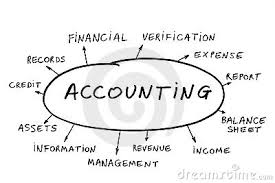 FINANCIAL VERIFICATION
RECORDS
EXPENSE
CREDIT
REPORT
ACCOUNTING
ASSETS
BALANCE
SHEET
INFORMATION
REVENUE
INCOME
MANAGEMENT
dreamstime.com